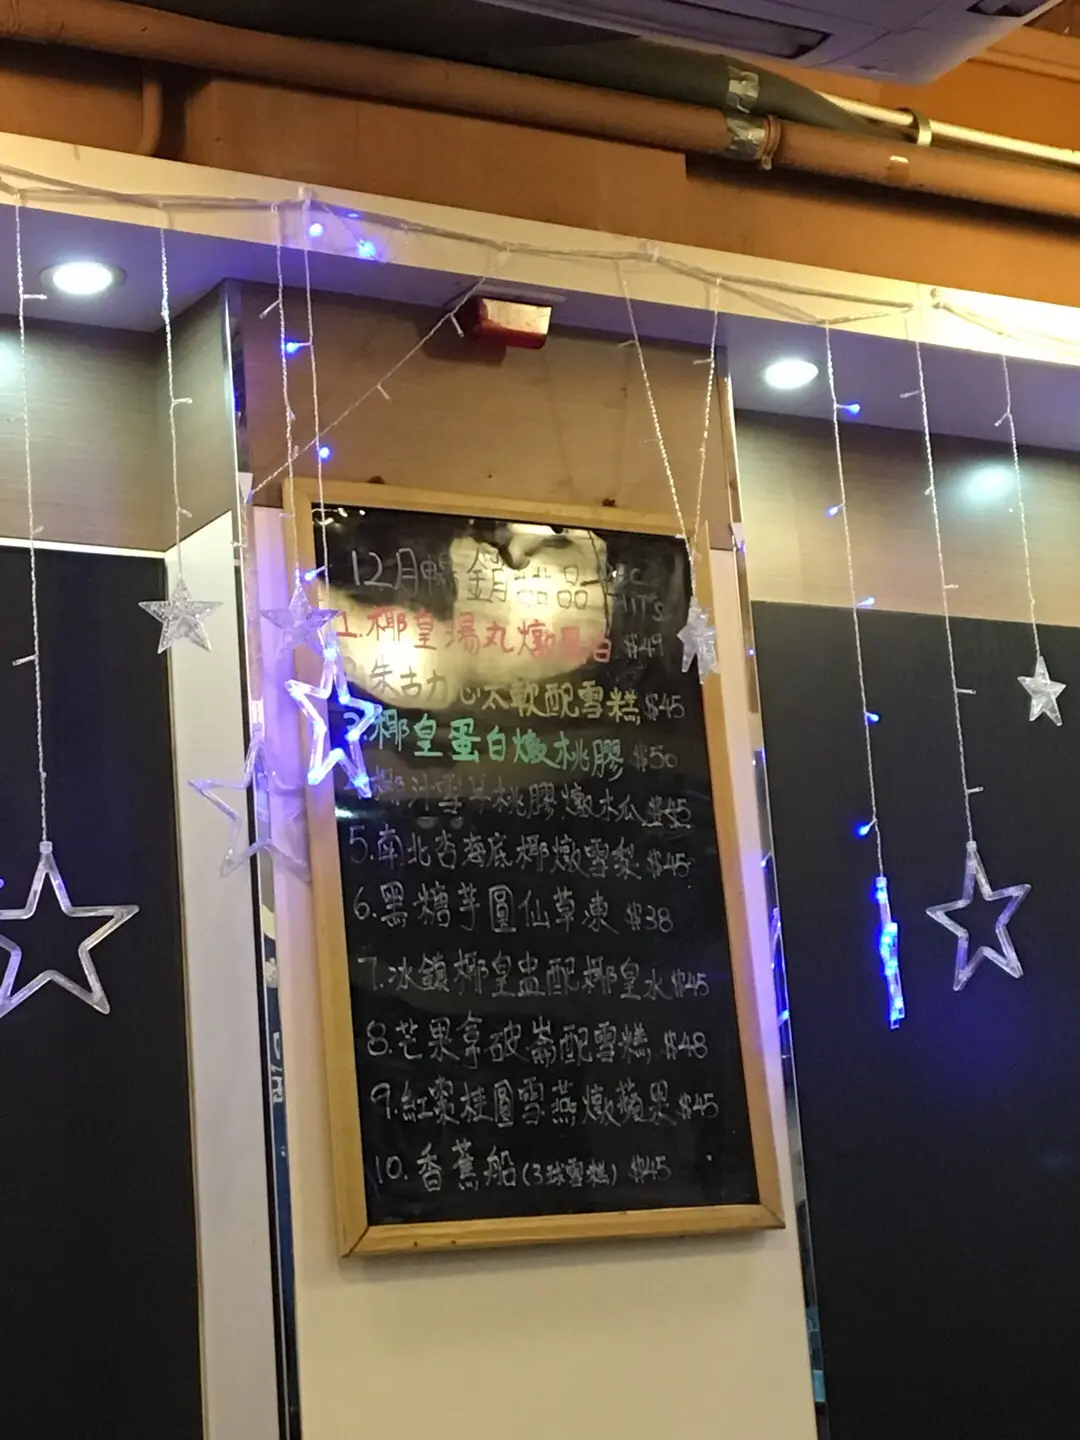 12月暢銷甜品 DEC HITS
1.椰皇湯丸燉蛋白 $49
2.朱古力心太軟配雪糕 $45
3.椰皇蛋白燉桃膠 $50
4.椰汁雪羊桃膠燉木瓜 $45
5.南北杏海底椰燉雪梨 $45
6.黑糖芋圓仙草凍 $38
7.冰鎮椰皇盅配椰皇水 $45
8.芒果拿破崙配雪糕 $48
9.紅棗桂圓雪燕燉蘋果 $45
10.香蕉船(3球雪糕) $45